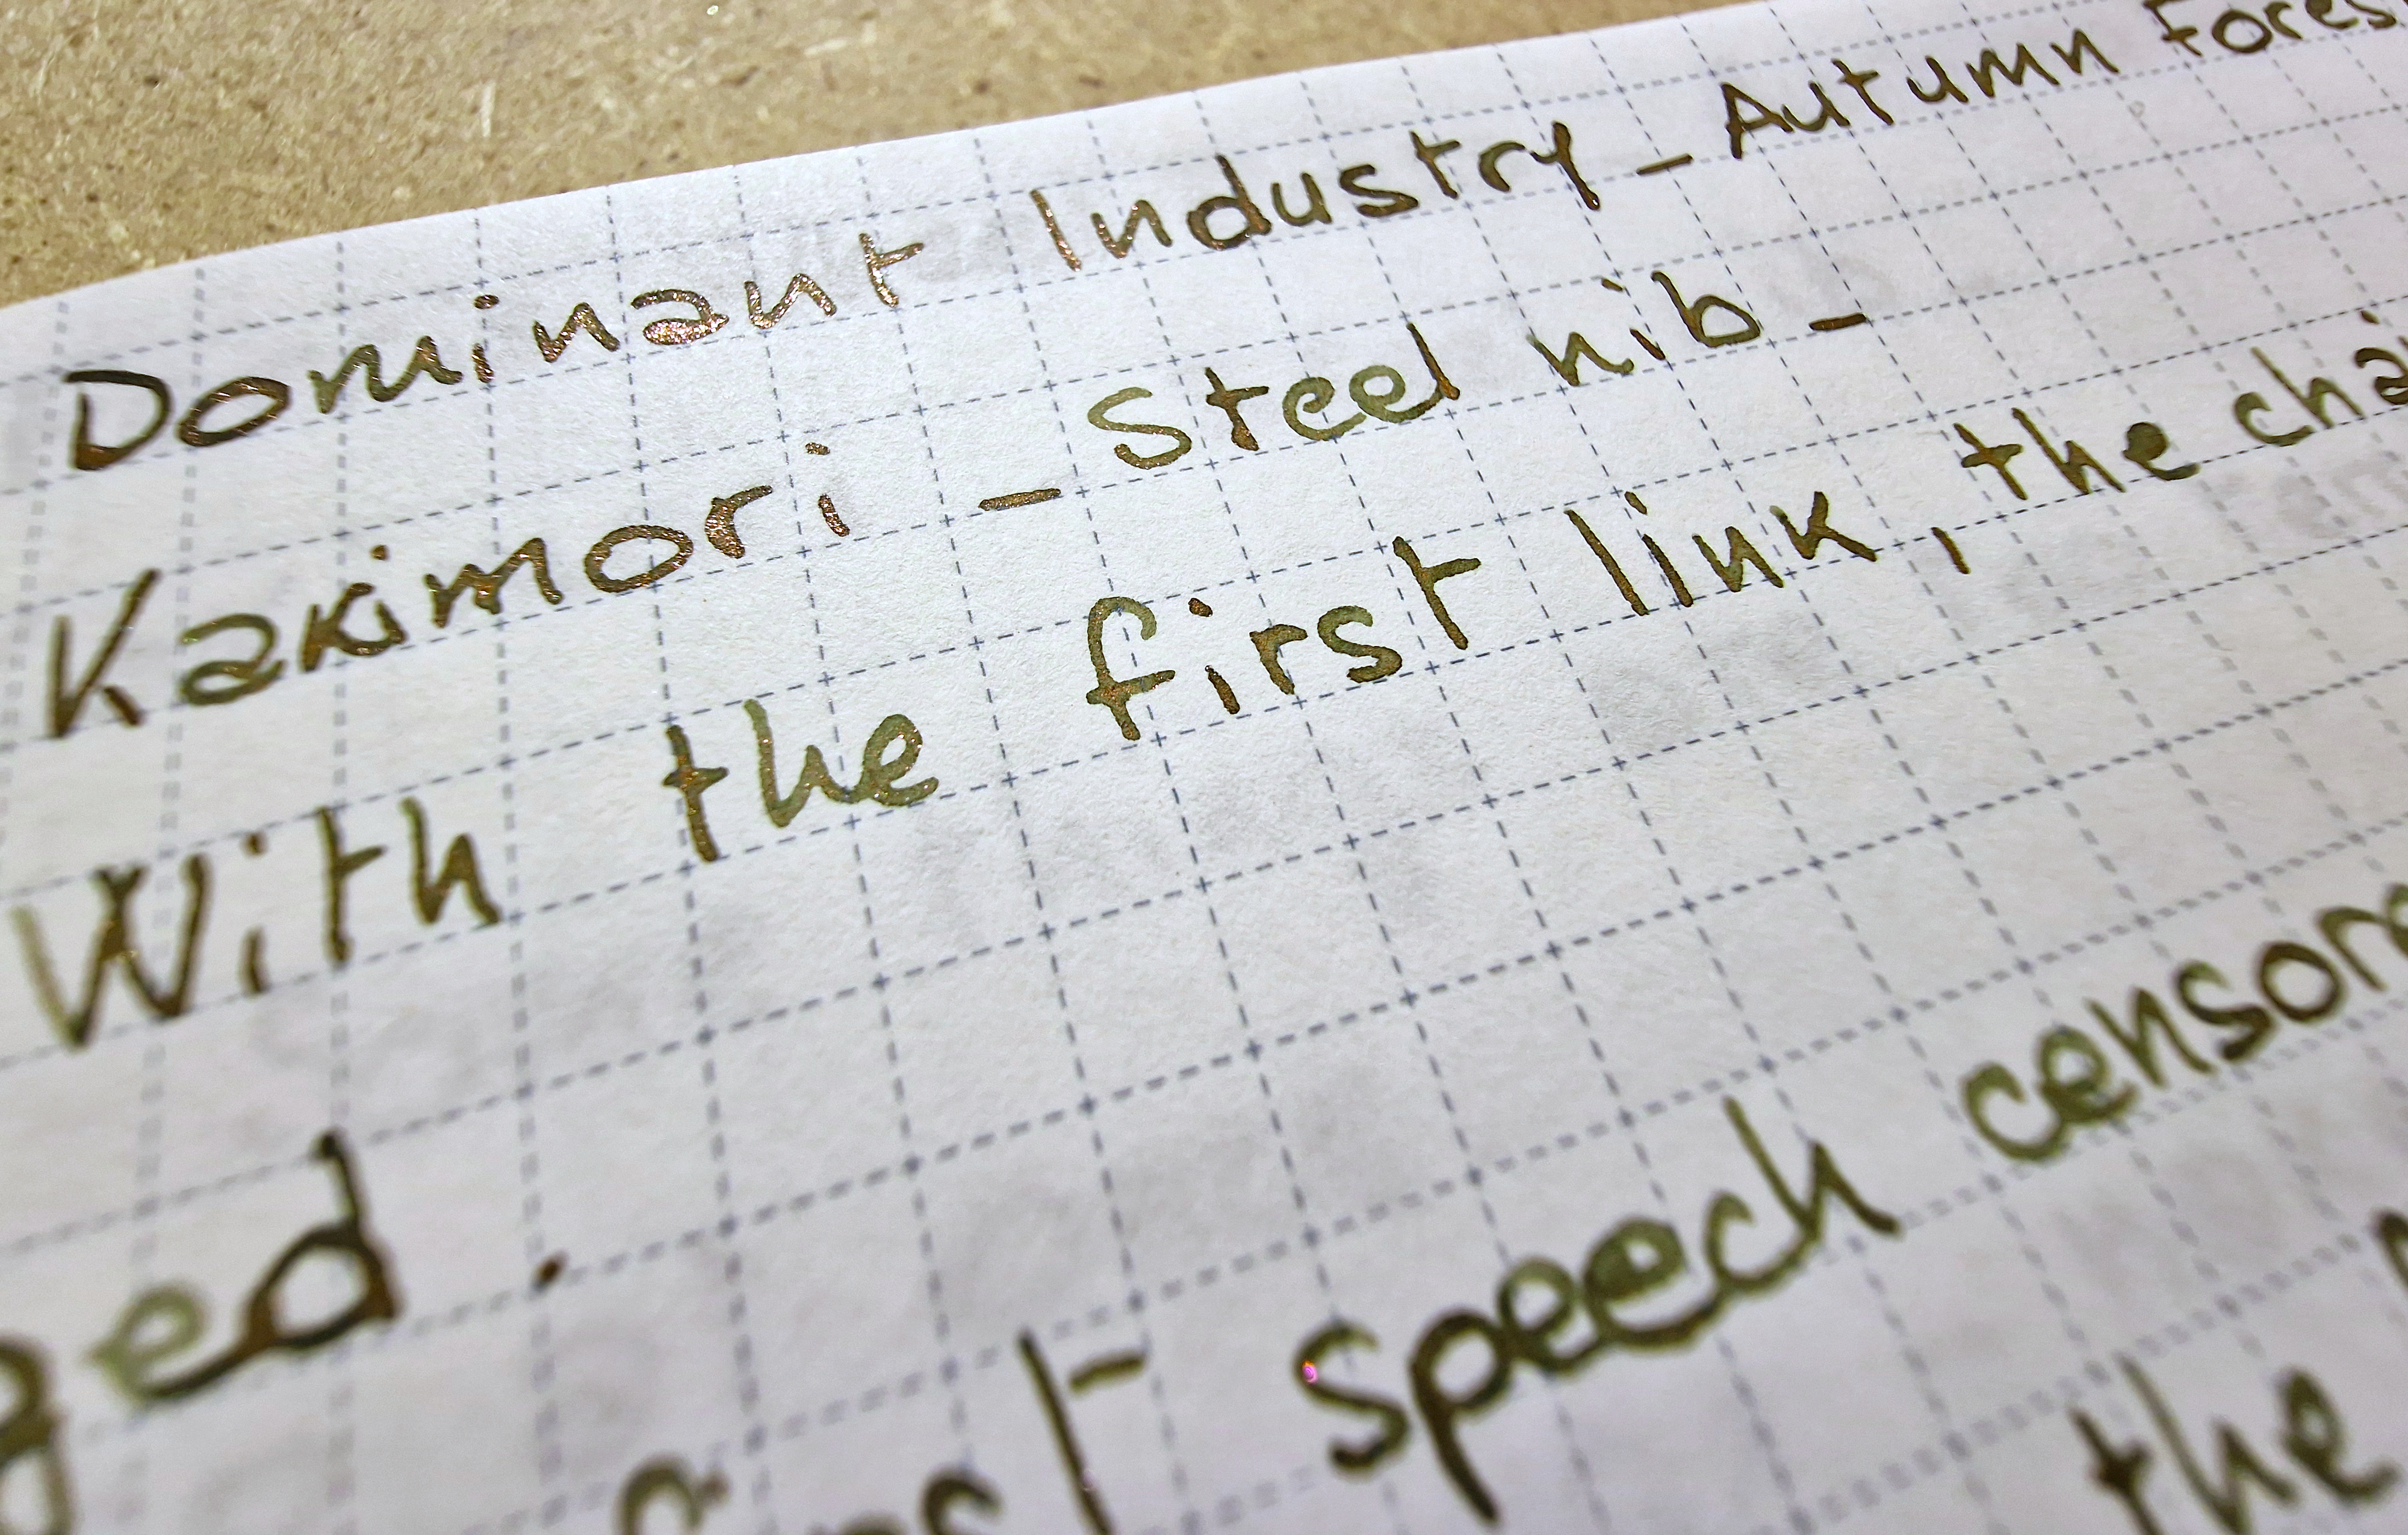 Dominant Industry - Autumn Fores
Kakimori - Steel nib -
With the first link, the cha
ged.
first speech censor
the